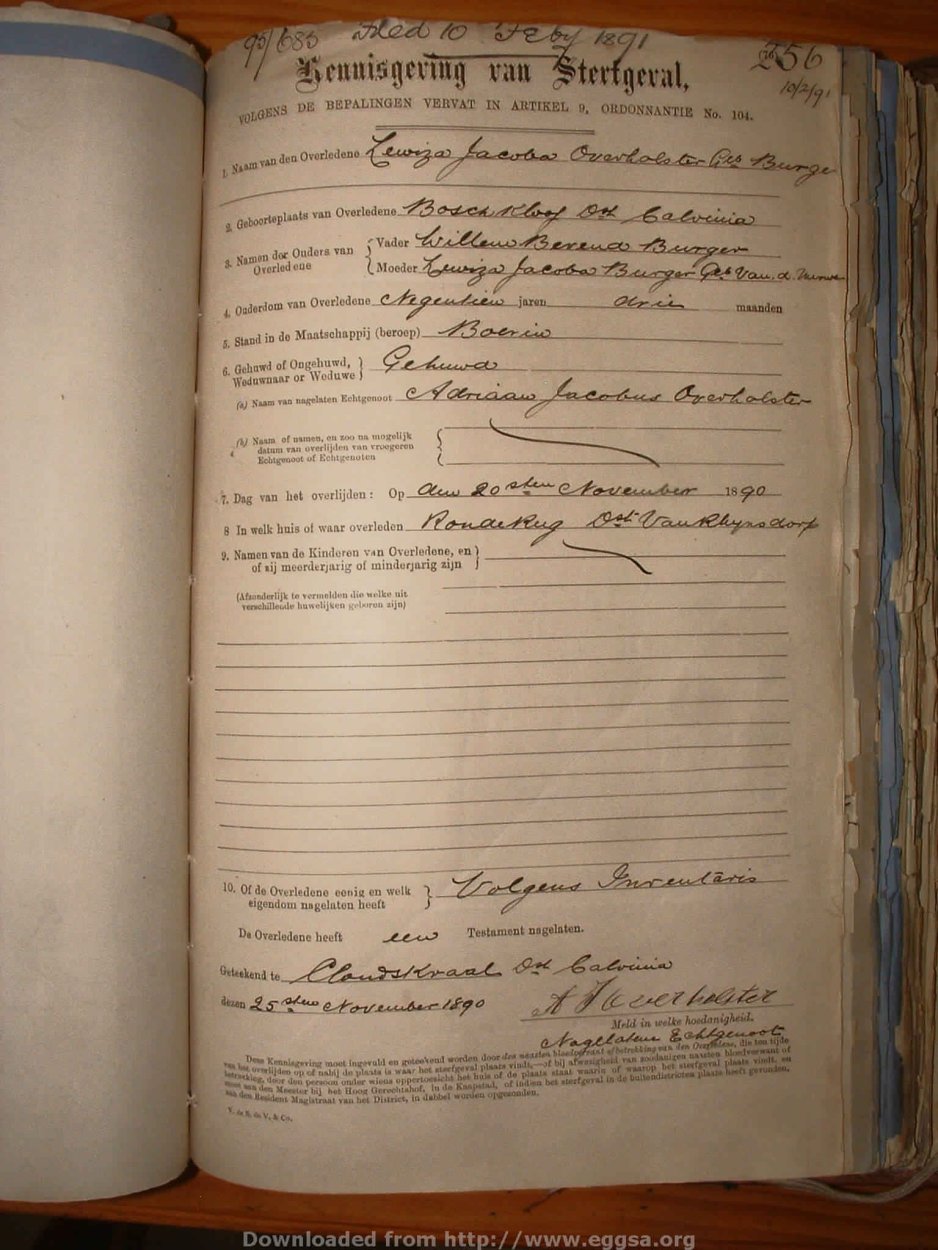 95/683 Filed 10 Feby 1891
256
10/2/91
Kennisgeving van Sterfgeval,
VOLGENS DE BEPALINGEN VERVAT IN ARTIKEL 9, ORDONNANTIE No. 104.
1. Naam van den Overledene Lewiza Jacoba Overholster Geb Burger
2. Geboorteplaats van Overledene Bosch Kloof Dst Calvinia
3. Namen der Ouders van Overledene
Vader Willem Berend Burger
Moeder Lewiza Jacoba Burger Geb Van. d. Merwe
4. Ouderdom van Overledene Negentien jaren drie maanden
5. Stand in de Maatschappij (beroep) Boerin
6. Gehuwd of Ongehuwd, Weduwnaar or Weduwe Gehuwd
(a) Naam van nagelaten Echtgenoot Adriaan Jacobus Overholster
(b) Naam of namen, en zoo na mogelijk
datum van overlijden van vroegeren
Echtgenoot of Echtgenoten
7. Dag van het overlijden: Op den 20sten November 1890
8 In welk huis of waar overleden Ronde Rug Dst Van Rhynsdorp
9. Namen van de Kinderen van Overledene, en
of zij meerderjarig of minderjarig zijn
(Afzonderlijk te vermelden die welke uit
verschillende huwelijken geboren zijn)
10. Of de Overledene eenig en welk
eigendom nagelaten heeft Volgens Inventaris
De Overledene heeft een Testament nagelaten.
Geteekend te Cloudskraal Dst Calvinia
dezen 25sten November 1890 A J Overholster
Meld in welke hoedanigheid.
Nagelaten Echtgenoot
Deze Kennisgeving moet ingevuld en geteekend worden door den naasten bloedverwant of betrekking van den Overledene, die ten tijde
van het overlijden op of nabij de plaats is waar het sterfgeval plaats vindt,—of bij afwezigheid van zoodanigen naasten bloedverwant of
betrekking, door den persoon onder wiens oppertoezicht het huis of de plaats staat waarin of waarop het sterfgeval plaats vindt, en
moet aan den Meester bij het Hoog Gerechtshof, in de Kaapstad, of indien het sterfgeval in de buitendistricten plaats heeft gevonden,
aan den Resident Magistraat van het District, in dubbel worden opgezonden.
V. de S. de V. & Co.
Downloaded from http://www.eggsa.org